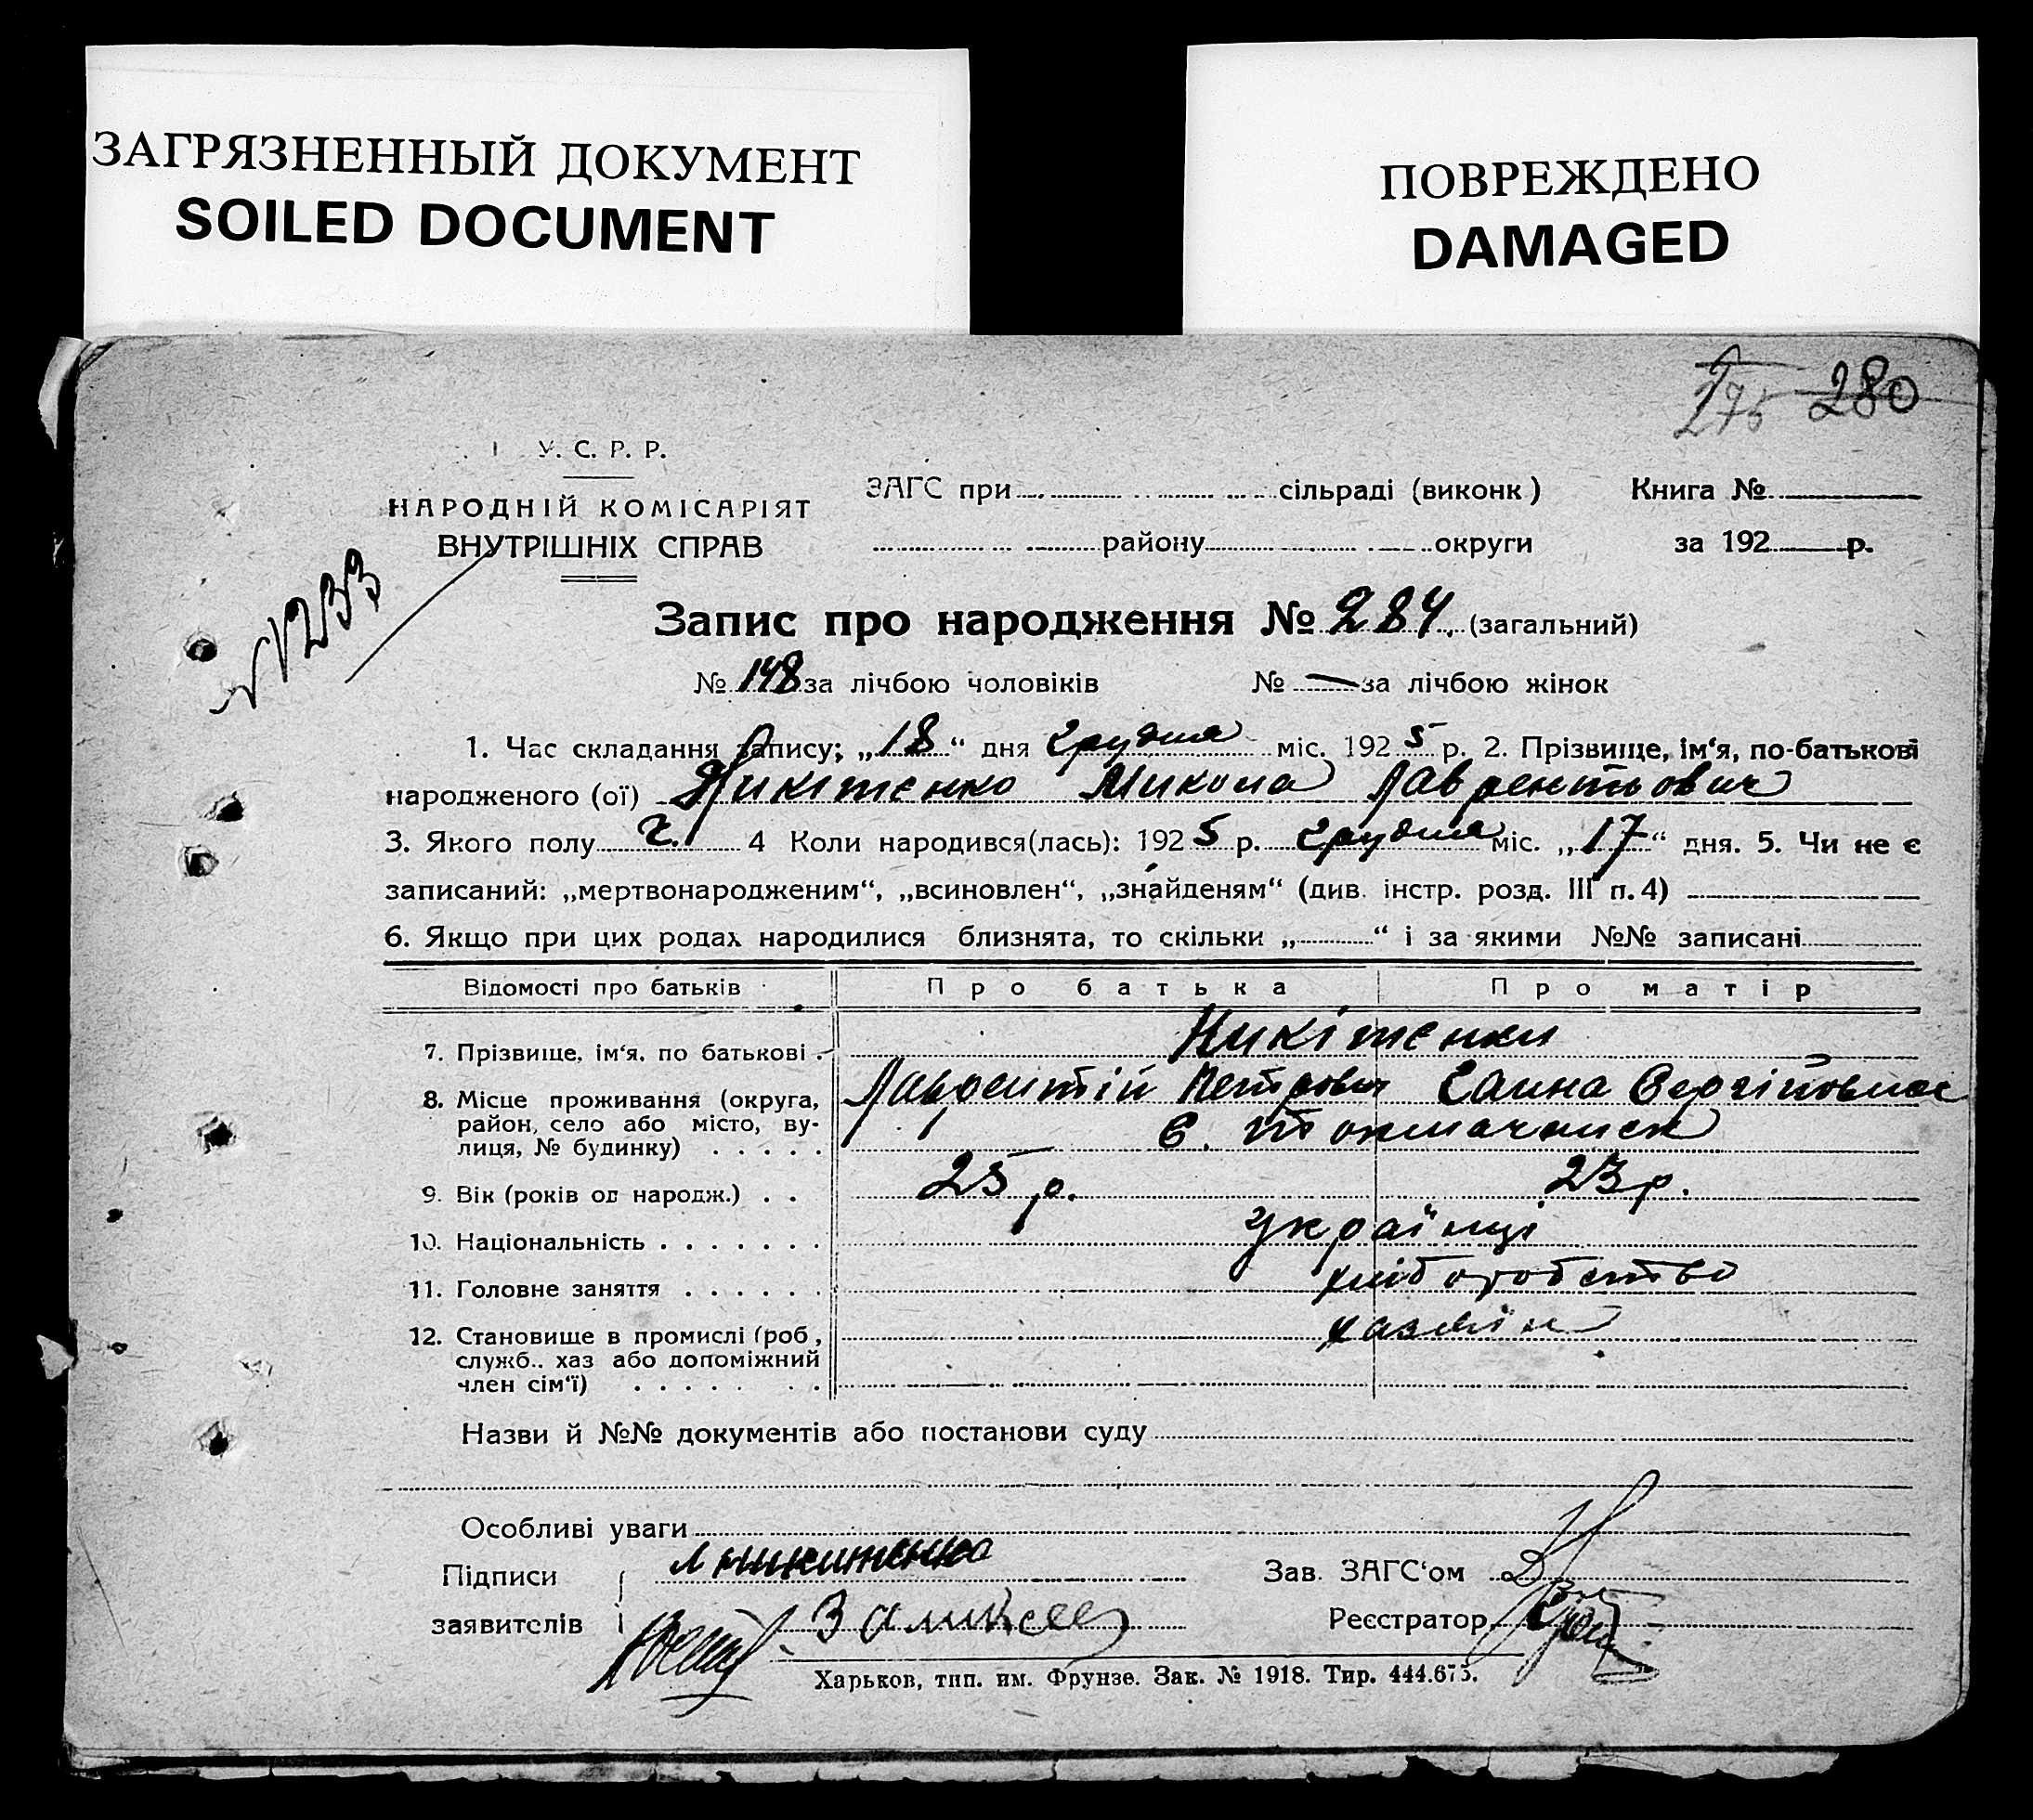 ЗАГРЯЗНЕННЫЙ ДОКУМЕНТ
SOILED DOCUMENT
ПОВРЕЖДЕНО
DAMAGED
275 280
У. С. Р. Р.
НАРОДНІЙ КОМІСАРІЯТ
ВНУТРІШНІХ СПРАВ
ЗАГС при сільраді (виконк)
району округи
Книга №
за 192 р.
№ 1233
Запис про народження № 284. (загальний)
№ 148 за лічбою чоловіків № — за лічбою жінок
1. Час складання запису; „18“ дня грудня міс. 1925 р. 2. Прізвище, ім‘я, по-батькові
народженого (ої) Никітенко Микола Лаврентьович
3. Якого полу ч. 4 Коли народився(лась): 1925 р. грудня міс. „17“ дня. 5. Чи не є
записаний: „мертвонародженим“, „всиновлен“, „знайденям“ (див. інстр. розд. III п. 4)
6. Якщо при цих родах народилися близнята, то скільки „ “ і за якими №№ записані
Відомості про батьків Про батька Про матір
7. Прізвище, ім‘я, по батькові Никітенки
Лаврентій Петрович Ганна Сергійовна
8. Місце проживання (округа,
район, село або місто, ву-
лиця, № будинку)
9. Вік (років од народж.) 25 р. 23 р.
10. Національність українці
11. Головне заняття хліборобство
12. Становище в промислі (роб.,
служб., хаз або допоміжний
член сім‘ї)
Назви й №№ документів або постанови суду
Особливі уваги
Підписи Л Никитенко
заявителів
Зав. ЗАГС‘ом
Реєстратор
Харьков, тип. им. Фрунзе. Зак. № 1918. Тир. 444.675.